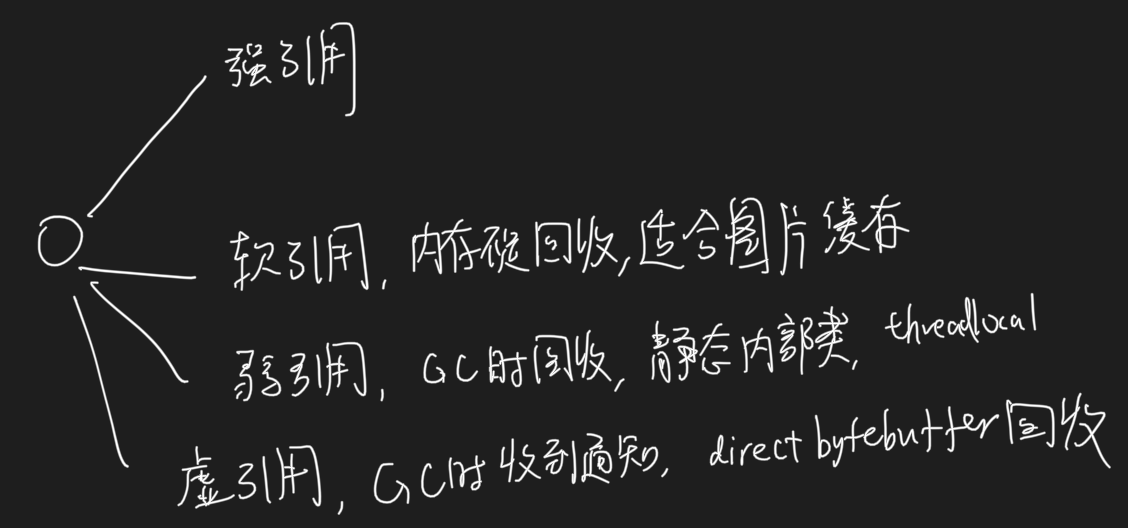 强引用
软引用,内存 回收,适合图片缓存
弱引用,GC时回收,静态内部类,threadlocal
虚引用,GC时收到通知,direct bytebuffer回收